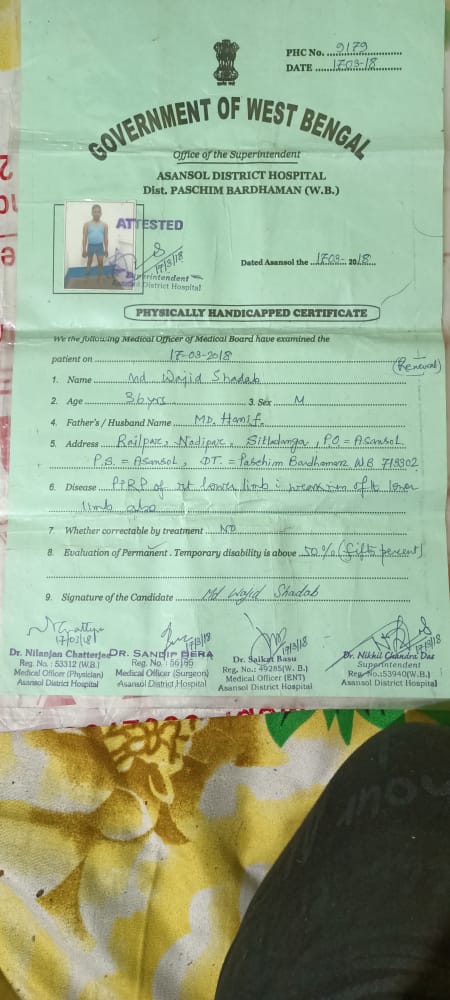 PHC No. 9179
DATE 17-03-18
GOVERNMENT OF WEST BENGAL
Office of the Superintendent
ASANSOL DISTRICT HOSPITAL
Dist. PASCHIM BARDHAMAN (W.B.)
ATTESTED
17/3/18
Superintendent
District Hospital
Dated Asansol the 17-03- 2018
PHYSICALLY HANDICAPPED CERTIFICATE
We the following Medical Officer of Medical Board have examined the
patient on 17-03-2018
(Renewal)
1. Name Md Wajid Shadab
2. Age 36 yrs 3. Sex M
4. Father's / Husband Name MD. Hanif.
5. Address Railpar, Nadipar, Sitladanga, P.O = Asansol
P.S. = Asansol, DT. = Paschim Bardhaman W.B 713302
6. Disease PPRP of rt lower limb weakness of lt lower
limb also
7 Whether correctable by treatment NO
8. Evaluation of Permanent . Temporary disability is above 50% (fifty percent)
9. Signature of the Candidate Md Wajid Shadab
17/03/18
17/3/18
17/3/18
17/3/18
Dr. Nilanjan Chatterjee
Reg. No. : 53312 (W.B.)
Medical Officer (Physician)
Asansol District Hospital
DR. SANDIP BERA
Reg. No. : 56196
Medical Officer (Surgeon)
Asansol District Hospital
Dr. Saikat Basu
Reg. No.: 49285(W. B.)
Medical Officer (ENT)
Asansol District Hospital
Dr. Nikhil Chandra Das
Superintendent
Reg. No.:53940(W.B.)
Asansol District Hospital